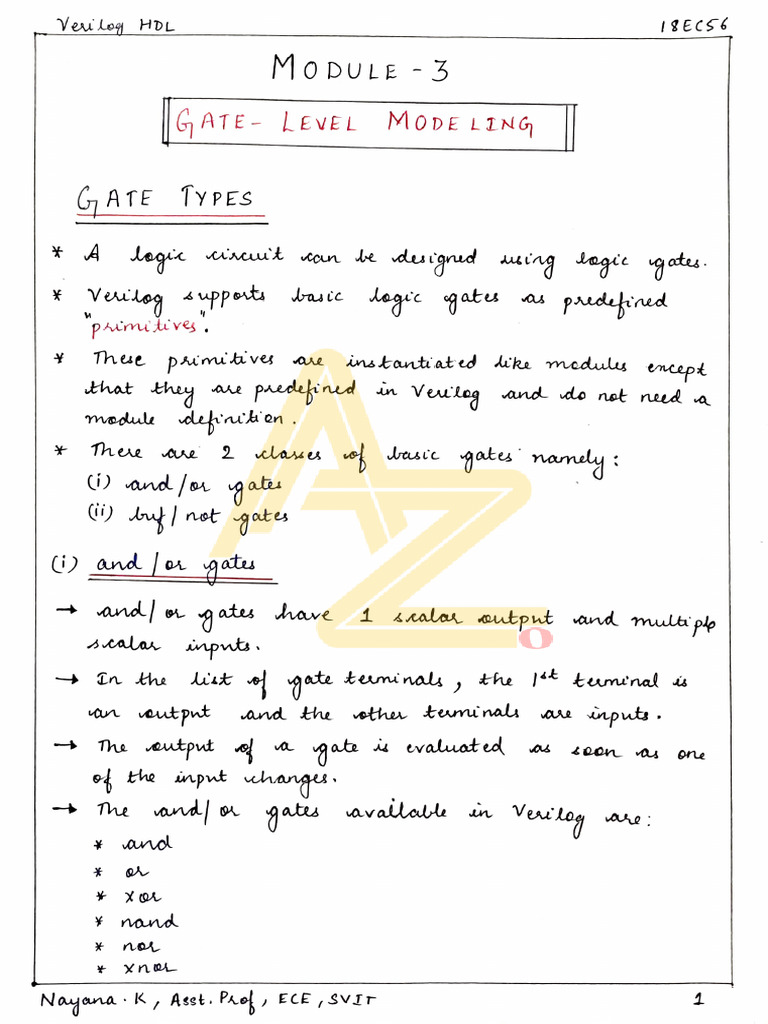 Verilog HDL 18EC56
MODULE - 3
GATE- LEVEL MODELING
GATE TYPES
* A logic circuit can be designed using logic gates.
* Verilog supports basic logic gates as predefined
"primitives".
* These primitives are instantiated like modules except
that they are predefined in Verilog and do not need a
module definition.
* There are 2 classes of basic gates namely:
(i) and/or gates
(ii) buf/not gates
(i) and/or gates
→ and/or gates have 1 scalar output and multiple
scalar inputs.
→ In the list of gate terminals, the 1st terminal is
an output and the other terminals are inputs.
→ The output of a gate is evaluated as soon as one
of the input changes.
→ The and/or gates available in Verilog are:
* and
* or
* xor
* nand
* nor
* xnor
Nayana.K, Asst. Prof, ECE, SVIT 1
AZO